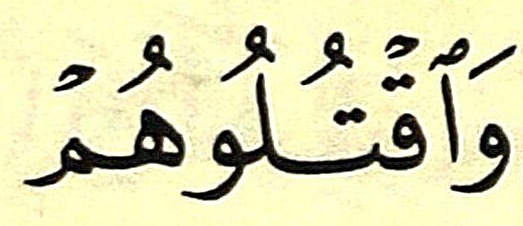 وَٱقْتُلُوهُمْ